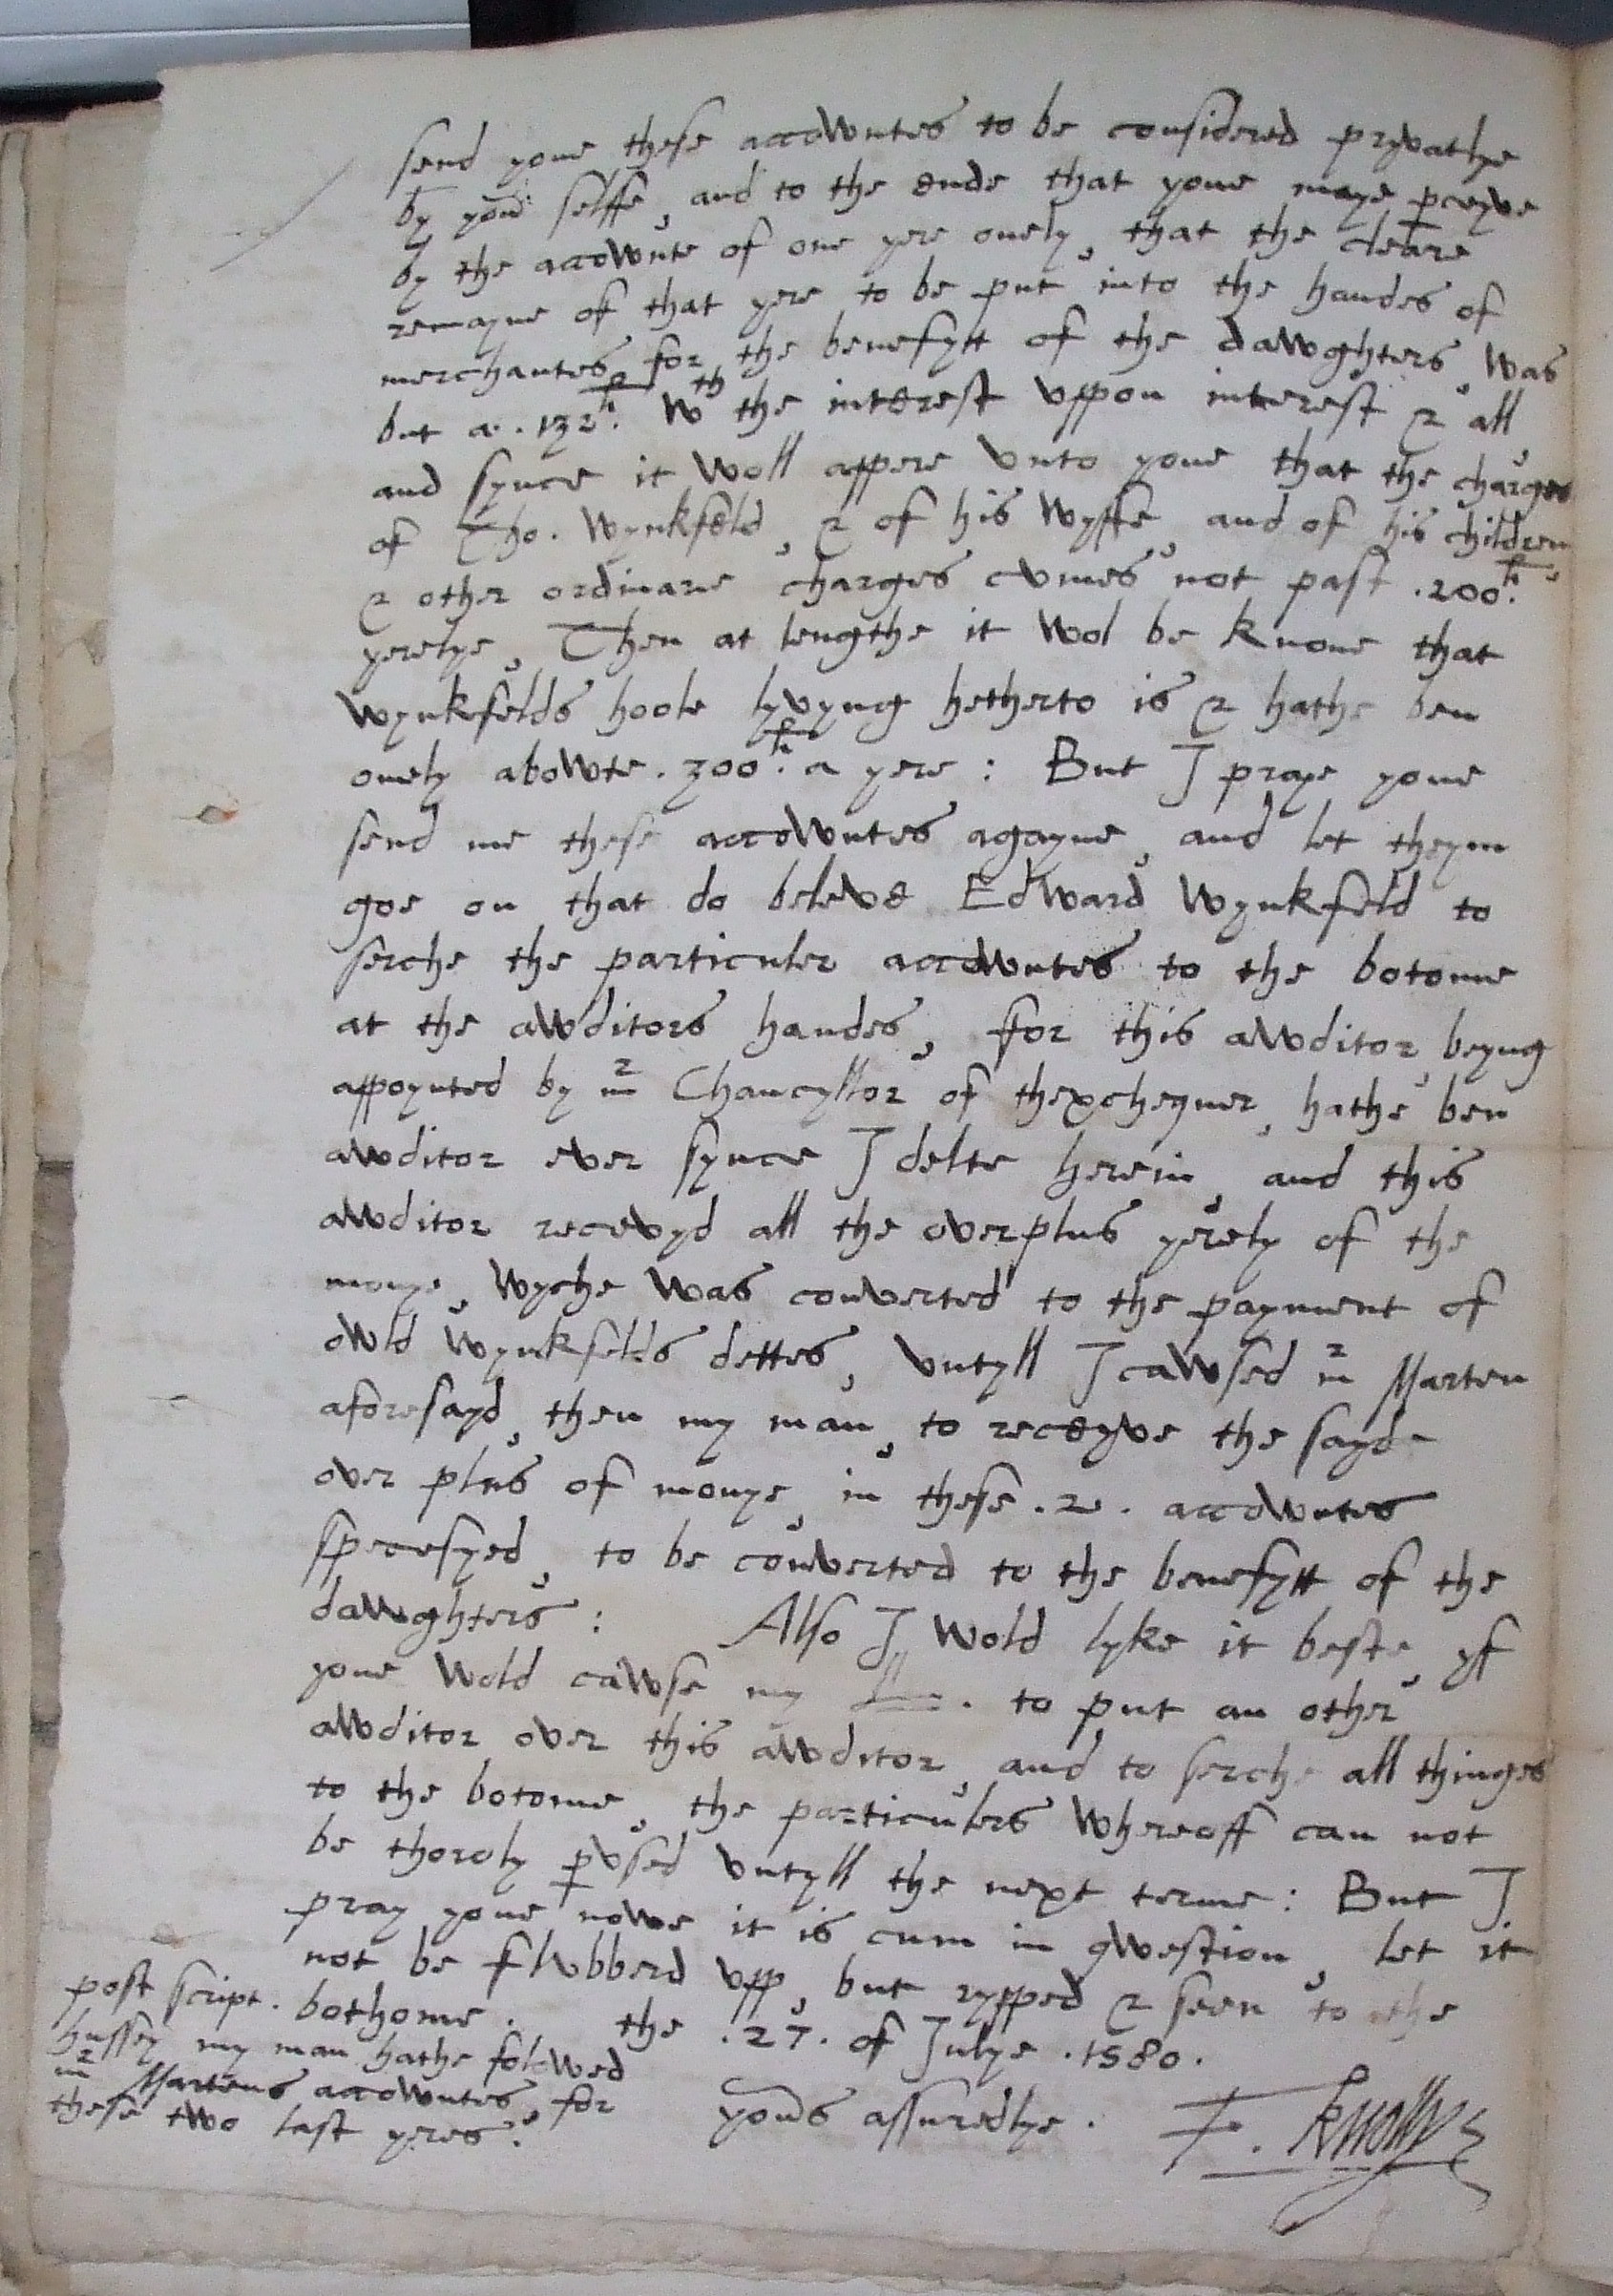 send youe these accowntes to be considered pryvatlye
by yor selffe, and to the ende that youe maye pceyve
by the accownte of one yere onely, that the cleare
remayne of that yere to be put into the handes of
merchantes for the benefytt of the dawghters, was
but a . 132li. wth the interest uppon interest & all,
and synce it woll appere unto youe that the charges
of Tho. Wynkfeld, & of his wyffe, and of his children,
& other ordinarie charges cumes not past . 200li.
yerelye, Then at lengthe it wol be knone that
Wynkfelds hoole lyvyng hetherto is & hathe ben
onely abowte . 300li. a yere : But I praye youe
send me these accowntes agayne, and let theym
goe on that do beleve Edward Wynkfeld to
serche the particuler accowntes to the botome
at the awditors handes, for this awditor, beyng
appoynted by mr Chancyllor of thexchequer, hathe ben
awditor ever synce I delte herein, and this
awditor recevyd all the overplus yerely of the
monye, wyche was converted to the payment of
owld Wynkfelds dettes, untyll I cawsed mr Marten
aforesayd, then my man, to receyve the sayde
over plus of monye, in these . 2 . accowntes
specefyed, to be converted to the benefytt of the
dawghters : Also I wold lyke it beste, yf
youe wold cawse my . to put an other
awditor over this awditor, and to serche all thinges
to the botome, the particulers whereoff can not
be thoroly pused untyll the next terme : But I
pray youe nowe it is cum in qwestion, let it
not be slubberd upp, but rypped & seen to the
bothome . the . 27 . of Julye . 1580 .
yors assuredlye . F. Knollys
post script .
hussey my man hathe folowed
mr Martens accowntes, for
these two last yeres .